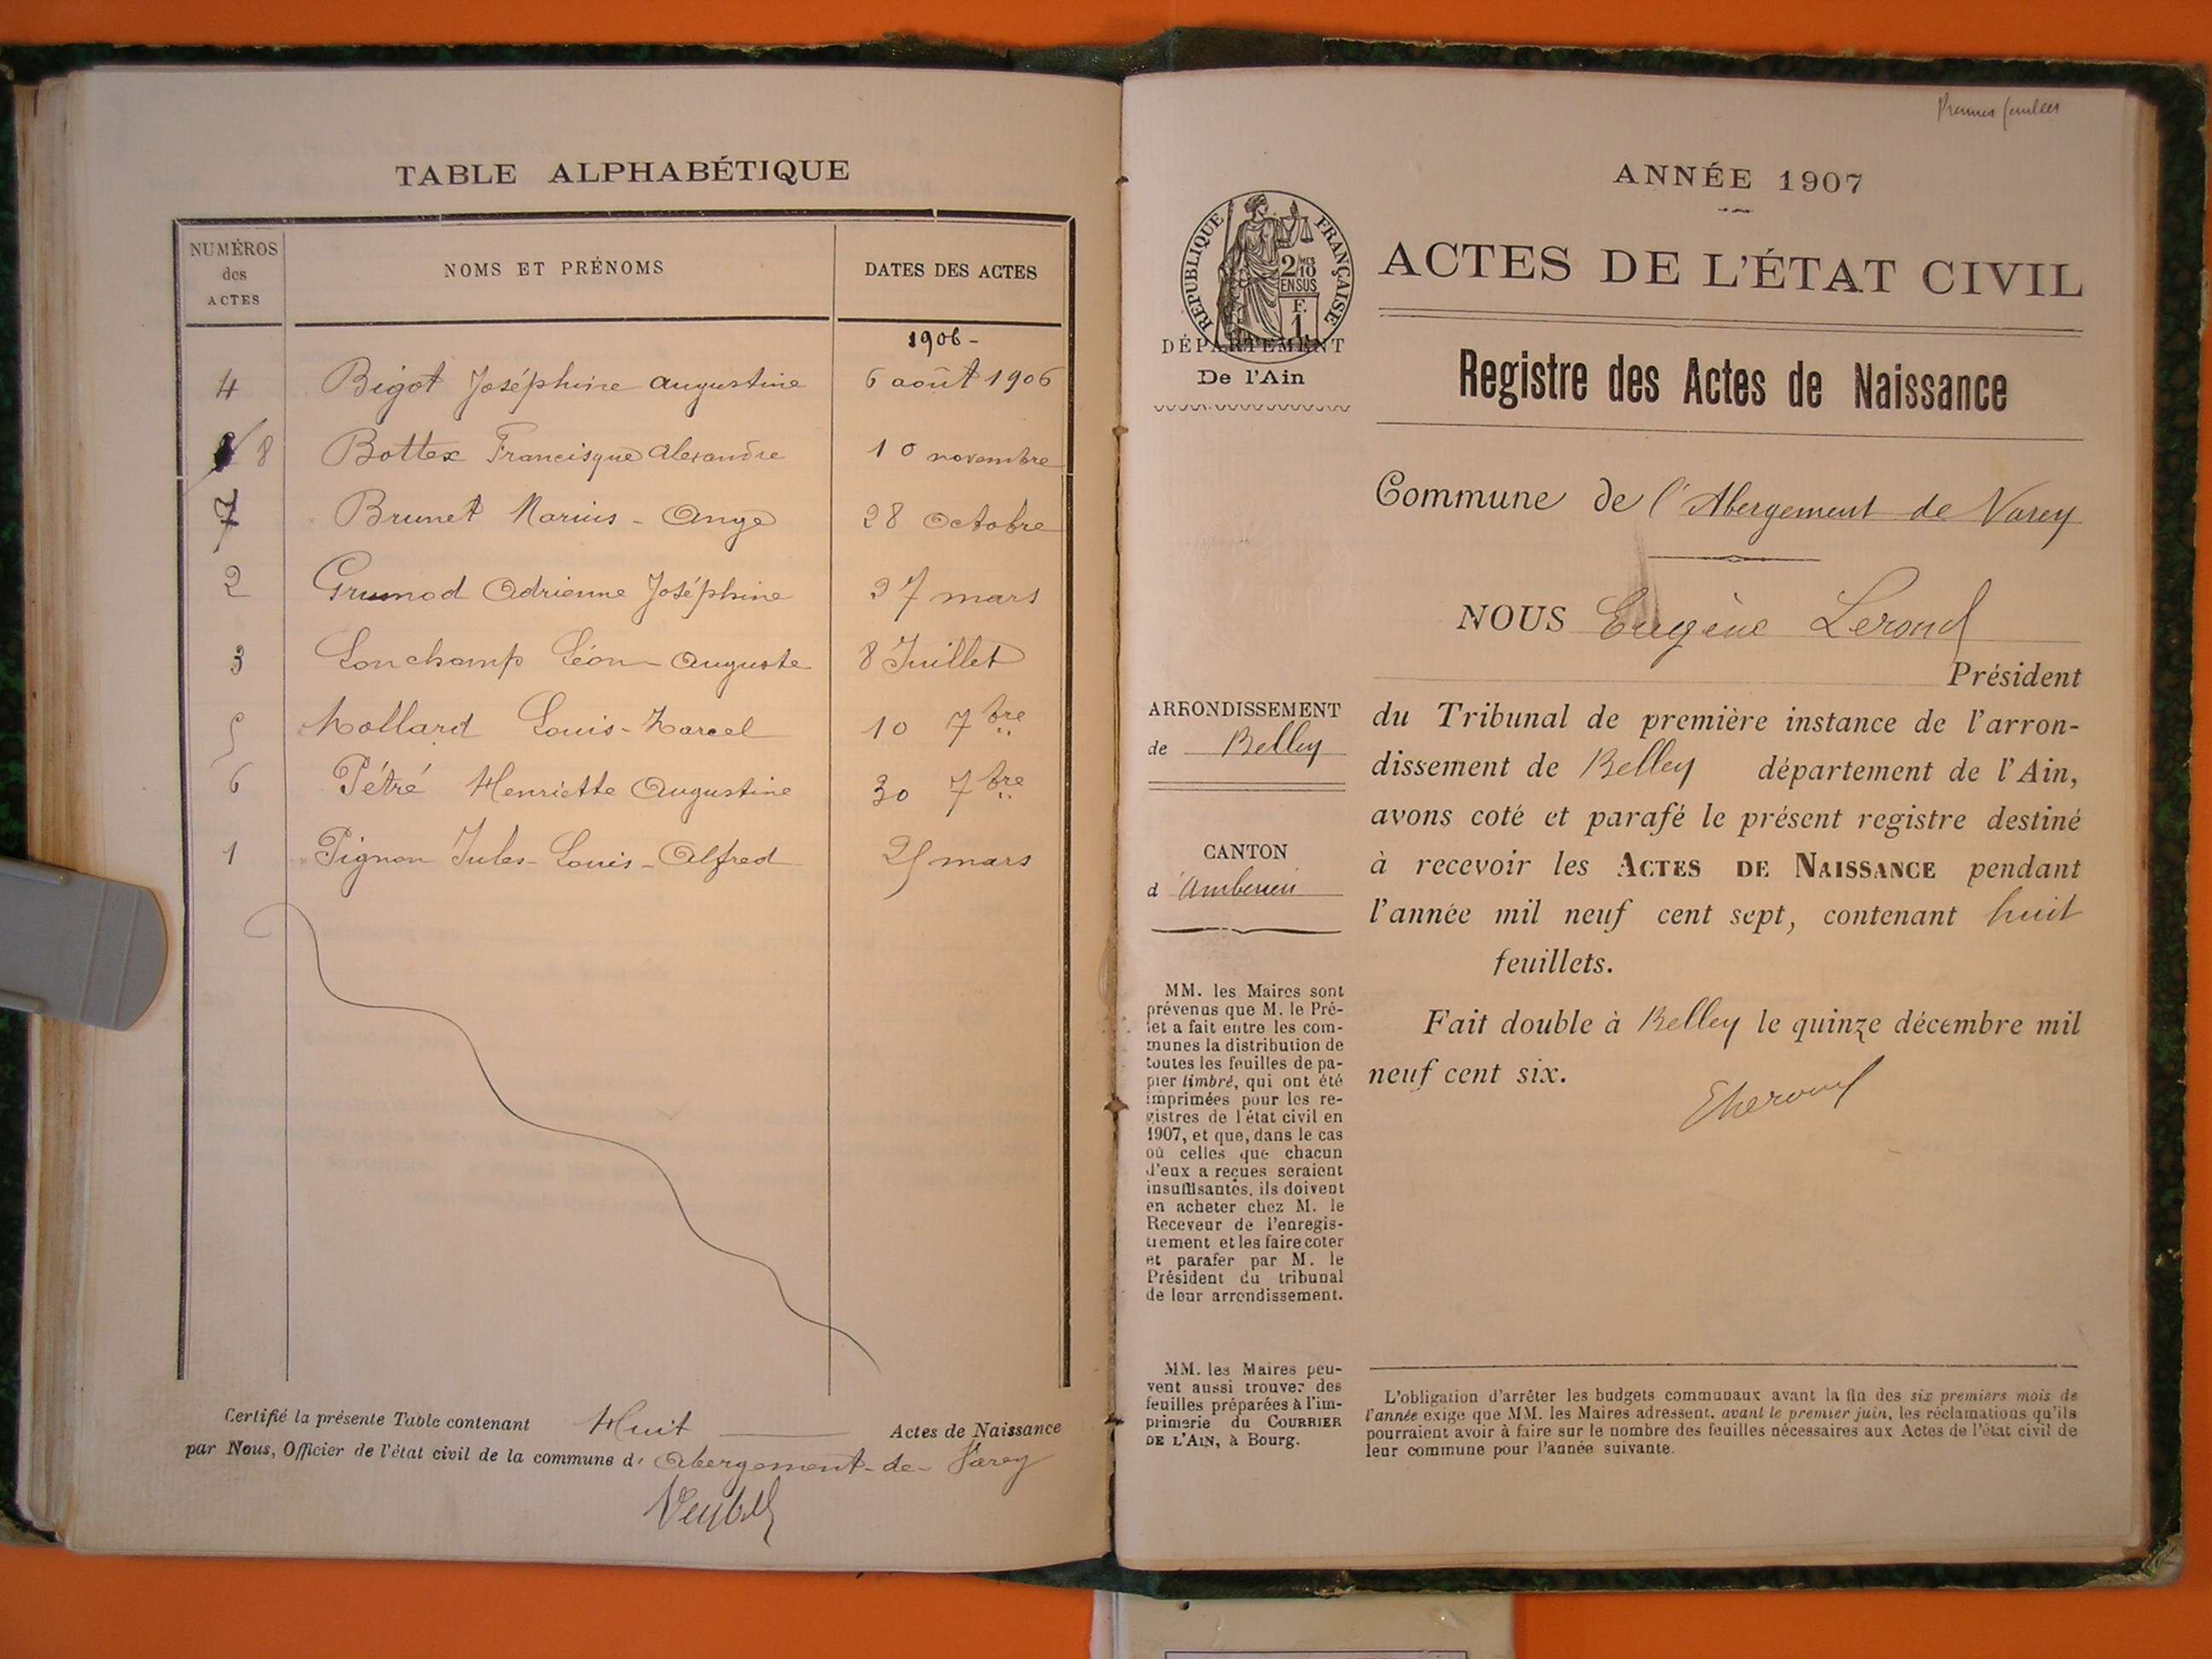 TABLE ALPHABÉTIQUE
NUMÉROS des ACTES
NOMS ET PRÉNOMS
DATES DES ACTES
1906 -
4 Bigot Joséphine Augustine 6 août 1906
8 Bottex Francisque Alexandre 10 novembre
7 Brunet Marius - Ange 28 Octobre
2 Grumod Adrienne Joséphine 27 mars
3 Lonchamp Léon - Auguste 8 Juillet
5 Mollard Louis - Marcel 10 7bre
6 Pétré Henriette Augustine 30 7bre
1 Pignon Jules - Louis - Alfred 25 mars
Certifié la présente Table contenant Huit Actes de Naissance
par Nous, Officier de l'état civil de la commune d' Abergement - de - Varey
Premier feuillet
ANNÉE 1907
RÉPUBLIQUE FRANÇAISE
2/10 EN SUS
F. 1
ACTES DE L'ÉTAT CIVIL
DÉPARTEMENT
De l'Ain
Registre des Actes de Naissance
Commune de l'Abergement de Varey
NOUS Eugène Lerond
Président
du Tribunal de première instance de l'arron-
dissement de Belley département de l'Ain,
avons coté et parafé le présent registre destiné
à recevoir les ACTES DE NAISSANCE pendant
l'année mil neuf cent sept, contenant huit
feuillets.
Fait double à Belley le quinze décembre mil
neuf cent six.
ARRONDISSEMENT
de Belley
CANTON
d'Ambérieu
MM. les Maires sont
prévenus que M. le Pré-
fet a fait entre les com-
munes la distribution de
toutes les feuilles de pa-
pier timbré, qui ont été
imprimées pour les re-
gistres de l'état civil en
1907, et que, dans le cas
où celles que chacun
d'eux a reçues seraient
insuffisantes, ils doivent
en acheter chez M. le
Receveur de l'enregis-
trement et les faire coter
et parafer par M. le
Président du tribunal
de leur arrondissement.
MM. les Maires peu-
vent aussi trouver des
feuilles préparées à l'im-
primerie du COURRIER
DE L'AIN, à Bourg.
L'obligation d'arrêter les budgets communaux avant la fin des six premiers mois de
l'année exige que MM. les Maires adressent, avant le premier juin, les réclamations qu'ils
pourraient avoir à faire sur le nombre des feuilles nécessaires aux Actes de l'état civil de
leur commune pour l'année suivante.